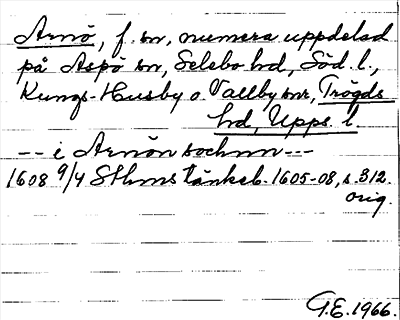 Arnö, f. sn, numera uppdelad
på Aspö sn, Selebo hd, Söd. l.,
Kungs-Husby o. Vallby snr, Trögds
hd, Upps. l.
-- i Arnön sochnn ---
1608 9/4 Sthms tänkeb. 1605-08, s. 312.
orig.
G.E. 1966.